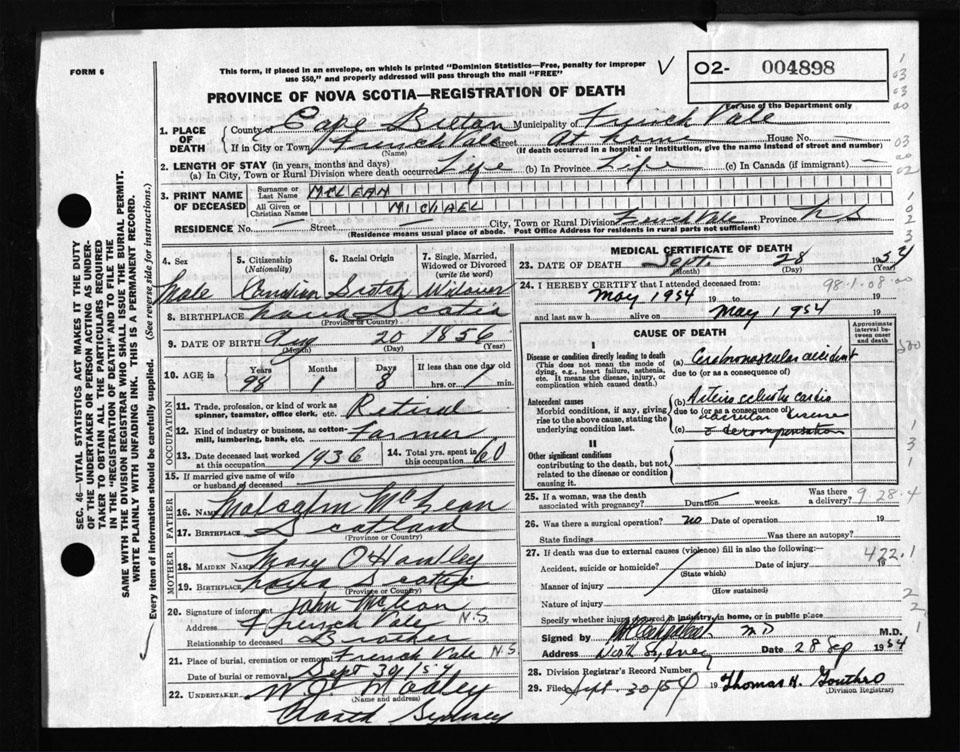 FORM 6
This form, if placed in an envelope, on which is printed "Dominion Statistics—Free, penalty for improper
use $50," and properly addressed will pass through the mail "FREE"
V
O2- 004898
PROVINCE OF NOVA SCOTIA—REGISTRATION OF DEATH
For use of the Department only
1. PLACE OF DEATH
County of Cape Breton Municipality of French Vale
If in City or Town French Vale Street At home House No. —
(Name) (If death occurred in a hospital or institution, give the name instead of street and number)
2. LENGTH OF STAY (in years, months and days)
(a) In City, Town or Rural Division where death occurred Life (b) In Province Life (c) In Canada (if immigrant) —
3. PRINT NAME OF DECEASED
Surname or Last Name MCLEAN
All Given or Christian Names MICHAEL
RESIDENCE No. — Street — City, Town or Rural Division French Vale Province N S
(Residence means usual place of abode. Post Office Address for residents in rural parts not sufficient)
4. Sex Male
5. Citizenship (Nationality) Canadian
6. Racial Origin Scotch
7. Single, Married, Widowed or Divorced (write the word) Widower
8. BIRTHPLACE Nova Scotia
(Province or Country)
9. DATE OF BIRTH Aug 20 1856
(Month) (Day) (Year)
10. AGE in Years 98 Months 1 Days 8 If less than one day old
hrs. or min.
OCCUPATION
11. Trade, profession, or kind of work as spinner, teamster, office clerk, etc. Retired
12. Kind of industry or business, as cotton-mill, lumbering, bank, etc. Farmer
13. Date deceased last worked at this occupation 1936
14. Total yrs. spent in this occupation 60
15. If married give name of wife or husband of deceased
FATHER
16. NAME Malcolm McLean
17. BIRTHPLACE Scotland
(Province or Country)
MOTHER
18. MAIDEN NAME Mary O'Handley
19. BIRTHPLACE Nova Scotia
(Province or Country)
20. Signature of informant John McLean
Address French Vale N.S.
Relationship to deceased Brother
21. Place of burial, cremation or removal French Vale N.S.
Date of burial or removal Sept 30/54
22. UNDERTAKER
(Name and address)
Sydney
MEDICAL CERTIFICATE OF DEATH
23. DATE OF DEATH Sept. 28 1954
(Month) (Day) (Year)
24. I HEREBY CERTIFY that I attended deceased from:
May 1954 19 to 19
and last saw h alive on May 1954 19
98-1-08-00
CAUSE OF DEATH
Approximate interval between onset and death
I
Disease or condition directly leading to death
(This does not mean the mode of dying, e.g., heart failure, asthenia, etc. It means the disease, injury, or complication which caused death.)
(a) Cerebrovascular accident
due to (or as a consequence of)
Antecedent causes
Morbid conditions, if any, giving rise to the above cause, stating the underlying condition last.
(b) Arteriosclerotic cardio
due to (or as a consequence of) vascular disease
(c) decompensation
II
Other significant conditions
contributing to the death, but not related to the disease or condition causing it.
25. If a woman, was the death associated with pregnancy? Duration weeks. Was there a delivery?
9.28.4
26. Was there a surgical operation? no Date of operation 19
State findings Was there an autopsy?
27. If death was due to external causes (violence) fill in also the following:—
Accident, suicide or homicide? Date of injury 19
(State which)
422.1
Manner of injury
(How sustained)
Nature of injury
Specify whether injury occurred in industry, in home, or in public place
Signed by M D M.D.
Address North Sydney Date 28 Sep 1954
28. Division Registrar's Record Number
29. Filed Sept. 30/54 19 Thomas H. Gouthro
(Division Registrar)
SEC. 46—VITAL STATISTICS ACT MAKES IT THE DUTY
OF THE UNDERTAKER OR PERSON ACTING AS UNDER-
TAKER TO OBTAIN ALL THE PARTICULARS REQUIRED
IN THE "REGISTRATION OF DEATH" AND TO FILE THE
SAME WITH THE DIVISION REGISTRAR WHO SHALL ISSUE THE BURIAL PERMIT.
WRITE PLAINLY WITH UNFADING INK. THIS IS A PERMANENT RECORD.
Every item of information should be carefully supplied. (See reverse side for instructions.)